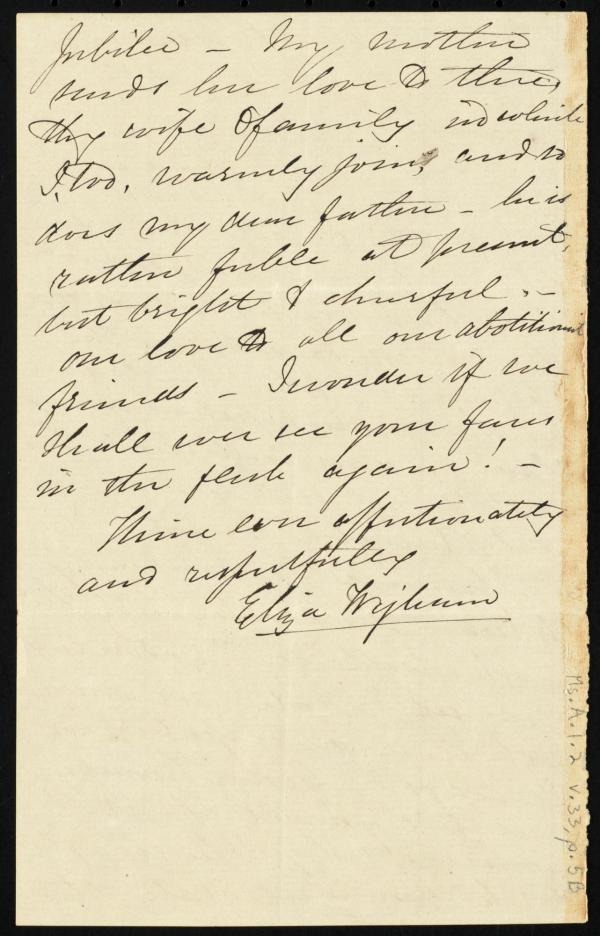 Jubilee — My mother
sends her love to thee,
thy wife & family in which
I, too, warmly join, and so
does my dear father — he is
rather feeble at present,
but bright & cheerful. —
our love to all our abolitionist
friends — I wonder if we
shall ever see your faces
in the flesh again! —
Thine ever affectionately
and respectfully
Eliza Wigham
Ms. A. 1. 2 v. 33, p. 5B